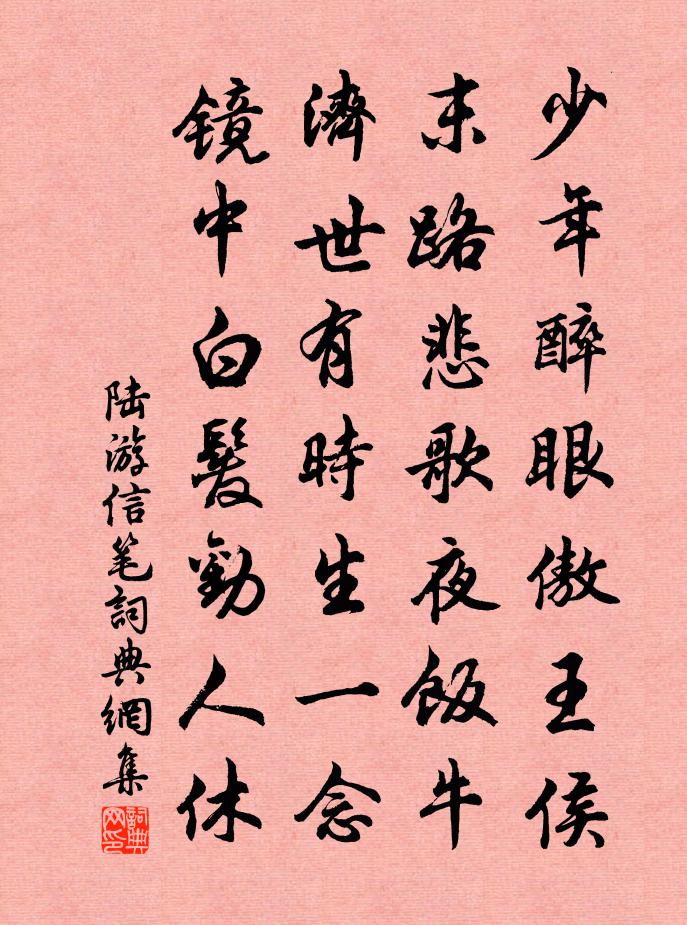 少年醉眼傲王侯
末路悲歌夜飯牛
濟世有時生一念
镜中白髮勸人休
陆游信笔詞典網集
詞典网印